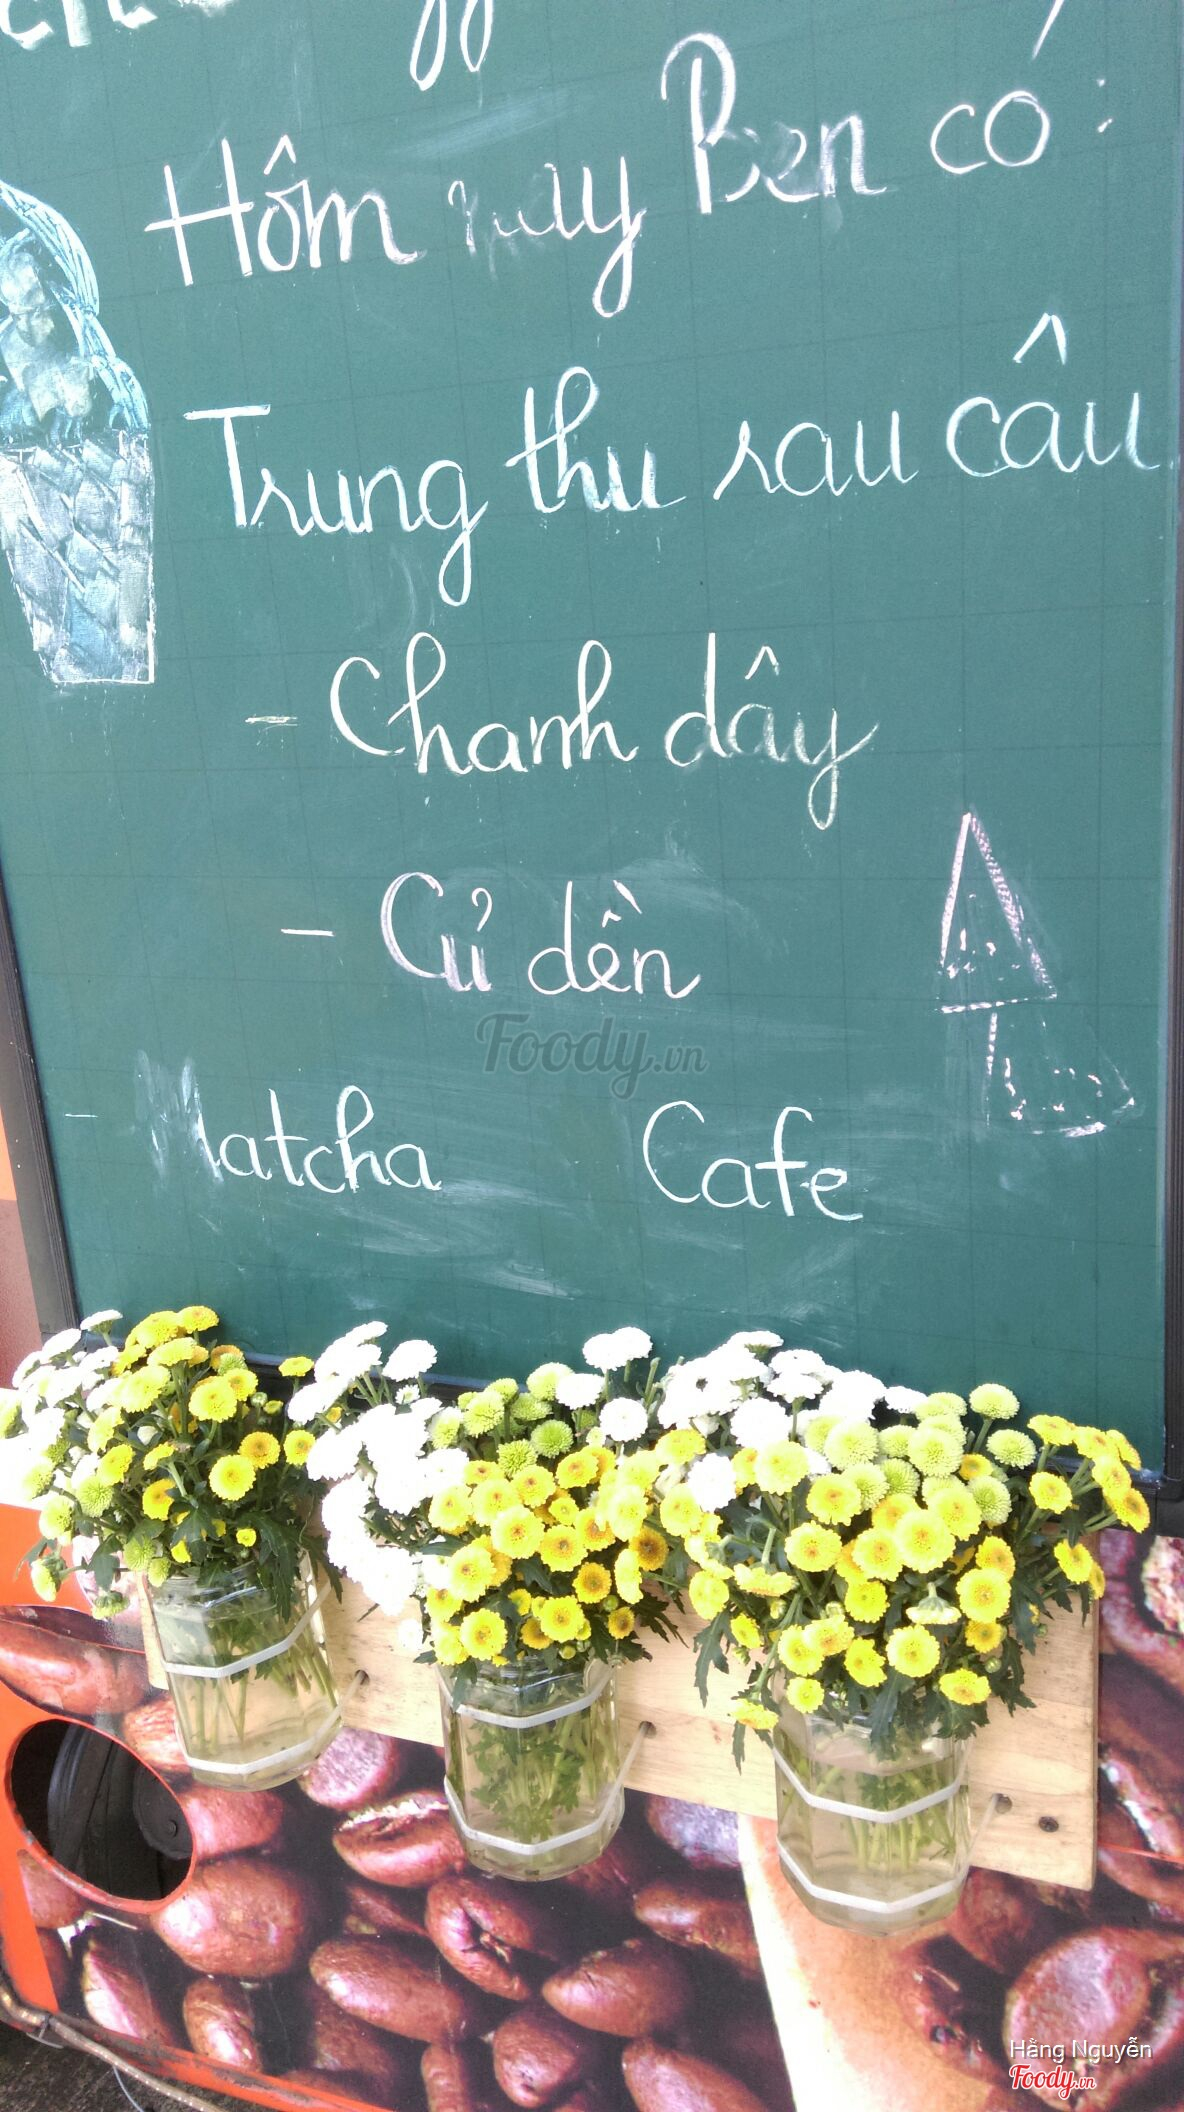 Hôm nay Ben có:
Trung thu rau câu
- Chanh dây
- Củ dền
Foody.vn
- Matcha Cafe
Hằng Nguyễn
Foody.vn